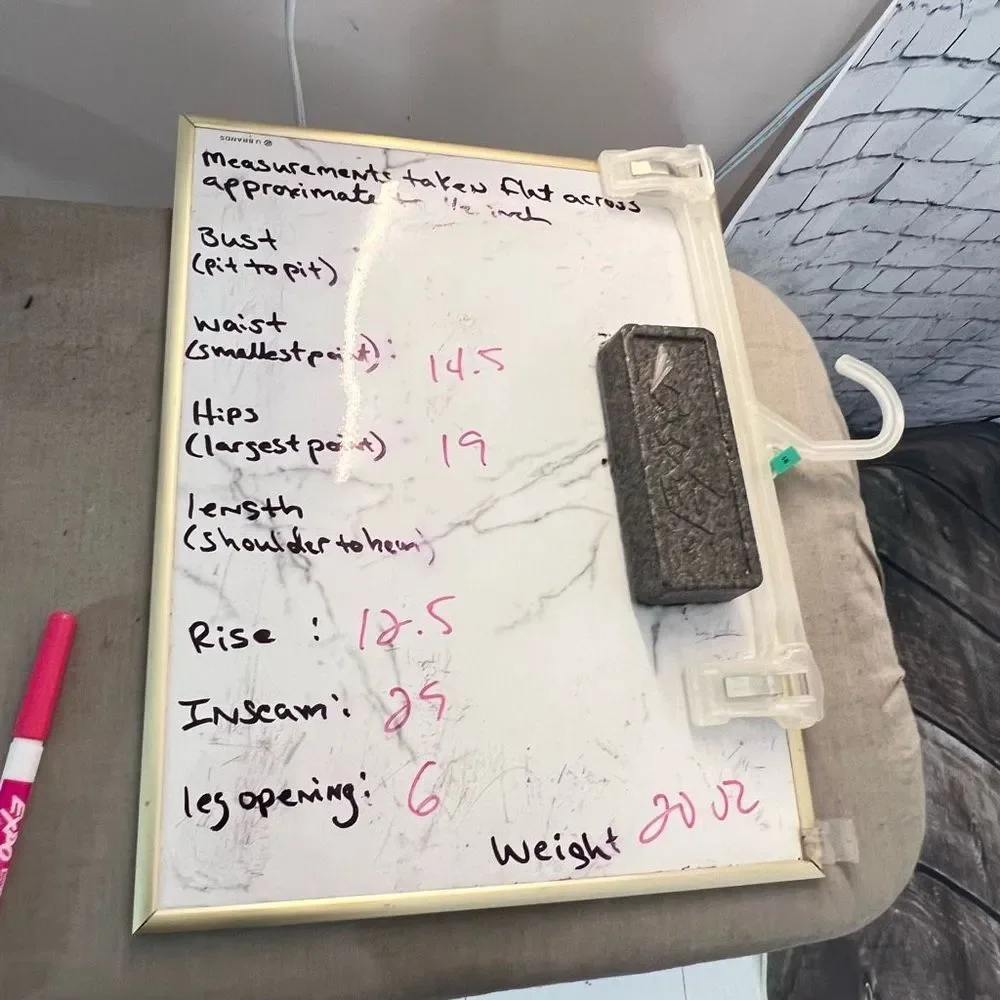 U BRANDS
Measurements taken flat across
approximate to 1/2 inch
Bust
(pit to pit)
Waist
(smallest point): 14.5
Hips
(largest point) 19
length
(shoulder to hem)
Rise : 12.5
Inseam: 29
leg opening: 6
Weight 20 oz
EXPO